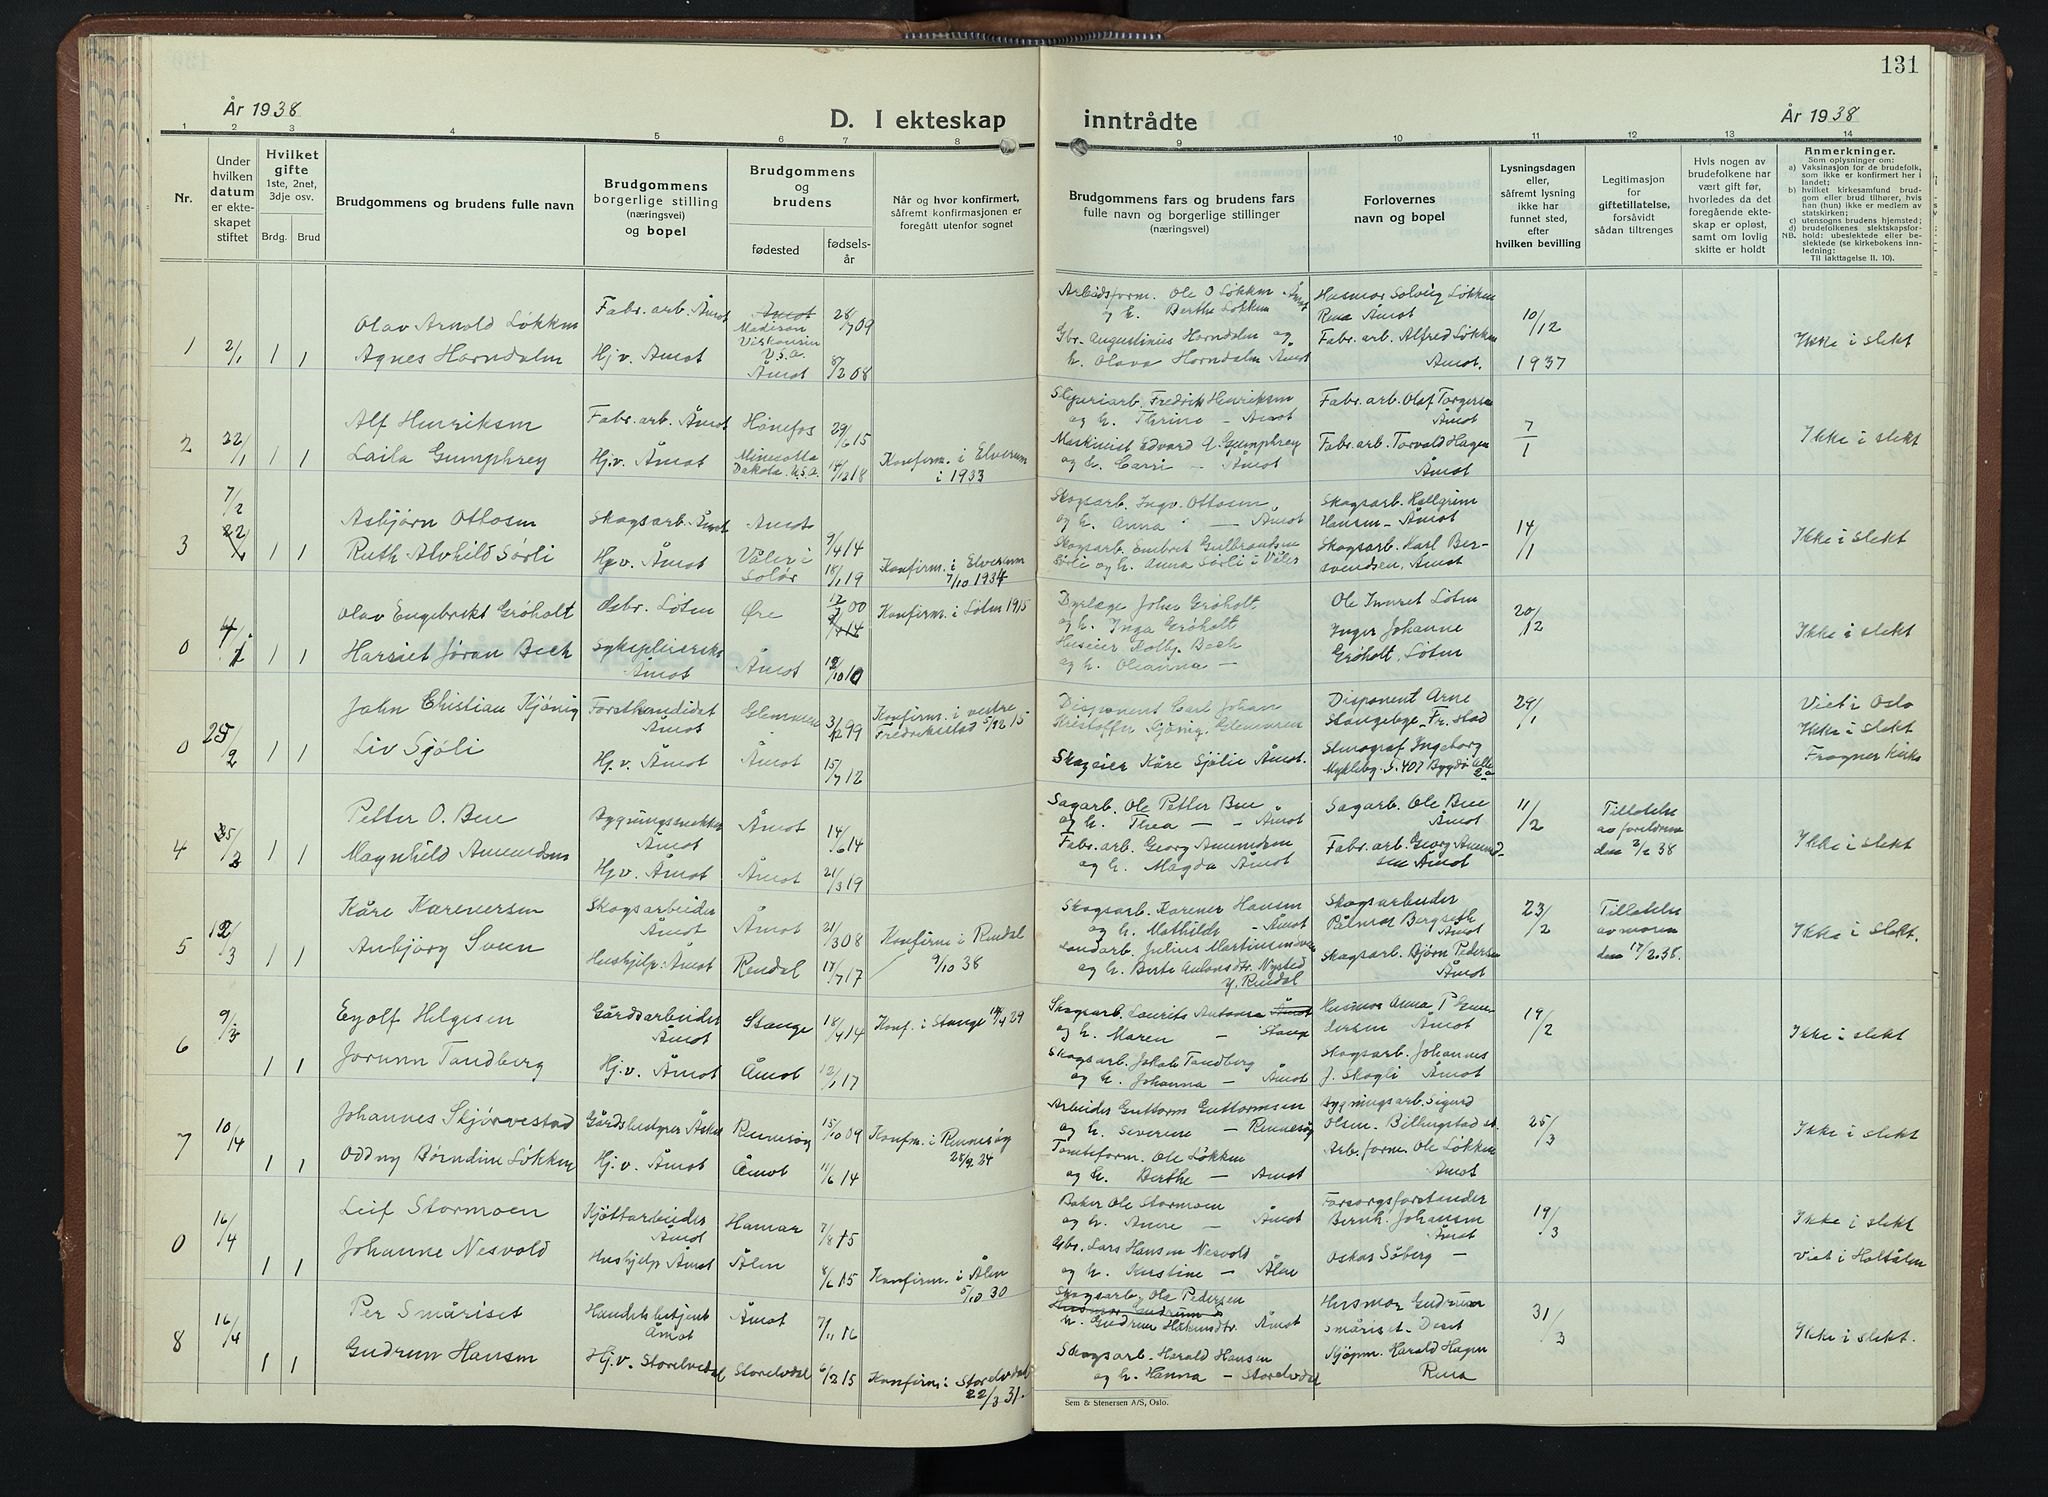 131
År 1938
D. I ekteskap
inntrådte
År 1938
1 2 3 4 5 6 7 8 9 10 11 12 13 14
Nr.
Under hvilken datum er ekteskapet stiftet
Hvilket gifte
1ste, 2net, 3dje osv.
Brdg. Brud
Brudgommens og brudens fulle navn
Brudgommens borgerlige stilling (næringsvei) og bopel
Brudgommens og brudens
fødested
fødselsår
Når og hvor konfirmert, såfremt konfirmasjonen er foregått utenfor sognet
Brudgommens fars og brudens fars fulle navn og borgerlige stillinger (næringsvei)
Forlovernes navn og bopel
Lysningsdagen eller, såfremt lysning ikke har funnet sted, efter hvilken bevilling
Legitimasjon for giftetillatelse, forsåvidt sådan tiltrenges
Hvis nogen av brudefolkene har vært gift før, hvorledes da det foregående ekteskap er opløst, samt om lovlig skifte er holdt
Anmerkninger.
Som oplysninger om:
a) Vaksinasjon for de brudefolk, som ikke er konfirmert her i landet;
b) hvilket kirkesamfund brudgom eller brud tilhører, hvis han (hun) ikke er medlem av statskirken;
c) utensogns brudens hjemsted;
d) brudefolkenes slektskapsforhold: ubeslektede eller beslektede (se kirkebokens innledning:
NB.
Til iakttagelse II. 10).
1 2/1 1 1
Olav Arnold Løkken Fabr. arb. Åmot Åmot Madison Viskonsin U.S.a. 28/7 09
Agnes Horndalen Hj.v. Åmot Åmot 8/2 08
Arbeidsform. Ole O Løkken Åmot og h. Berthe Løkken
Gbr. Augustinus Horndalen og h. Olava Horndalen Åmot
Husmor Solveig Løkken Rena Åmot
Fabr. arb. Alfred Løkken Åmot.
10/12 1937
Ikke i slekt
2 22/1 1 1
Alf Henriksen Fabr. arb Åmot Hønefos 29/6 15
Laila Gumphrey Hj.v. Åmot Minesotta Dakota U.S.a. 14/12 18 Konfirm. i Elverum i 1933
Sliperiarb. Fredrik Henriksen og h. Thrine - Åmot
Maskinist Edvard Q Gumphrey og h. Carri - Åmot
Fabr. arb. Olaf Torgersen Åmot
Fabr. arb. Torvald Hagen Åmot
7/1
Ikke i slekt
3 7/2 22/1 1 1
Asbjørn Ottosen Skogsarb. Åmot Åmot 9/4 14
Ruth Alvhild Sørli Hj.v. Åmot Våler i Solør 18/1 19 Konfirm. i Elverum 7/10 1934
Skogsarb. Ingv. Ottosen og h. Anna - Åmot
Skogsarb. Embret Gulbrandsen Sørli og h. Anna Sørli i Våler
Skogsarb. Hallgrim Hansen - Åmot
Skogsarb. Karl Bersvendsen, Åmot
14/1
Ikke i slekt
0 1 1
Olav Engebrikt Grøholt Gbr. Løten Øre 12/7 00 Konfirm. i Løten 1915
Harriet Jøran Bech Sykepleierske Åmot Åmot 10
Dyrlæge Johs Grøholt og h. Inga Grøholt
Huseier Kolbj. Bech og h. Oleanna -
Løten
Inger Johanne Grøholt, Løten
20/12
Ikke i slekt
0 25/2 1 1
John Christian Kjønig Forstkandidat Åmot Glemmen 3/12 99 Konfirm. i vestre Fredrikstad 5/12 15
Liv Sjøli Hj.v. Åmot Åmot 15/7 12
Disponent Carl Johan Kristoffer Kjønig, Glemmen
Skogeier Kåre Sjølie Åmot.
Disponent Arne Stangebye - Fr.stad
Stenograf Ingeborg Mykleby S. 407 Bygdø Alle
24/1
Viet i Oslo
Ikke i slekt
Frogner Kirke
4 1 1
Petter O. Bue Bygningssnekker Åmot Åmot 14/6 14
Magnhild Amundsen Hj.v. Åmot Åmot 21/3 19
Sagarb. Ole Petter Bue og h. Thea - Åmot
Fabr. arb. Georg Amundsen og h. Magda Åmot
Sagarb. Ole Bue Åmot
Fabr. arb. Georg Amundsen Åmot
11/2
Tillatelse av foreldrene den 2/2 38
Ikke i slekt
5 12/3 1 1
Kåre Karenersen Skogsarbeider Åmot Åmot 21/3 08
Anbjørg Sveen Hushjelp. Åmot Rendal 17/7 17 Konfirm i Rendal 9/10 38
Skogsarb. Karener Hansen og h. Mathilde - Åmot
Landarb. Julius Martinsen og h. Berte Antonsdtr. Nysted Y. Rendal
Skogsarbeider Pålmar Bergseth Åmot
Skogsarb. Bjørn Pedersen Åmot
23/2
Tillatelse av moren den 17/2. 38.
Ikke i slekt.
6 9/3 1 1
Eyolf Helgesen Gårdsarbeider Åmot Stange 18/4 14 Konf. i Stange 14/4 29
Jorunn Tandberg Hj.v. Åmot Åmot 12/1 17
Skogsarb. Laurits Antonsen Åmot og h. Maren - Stange
Skogsarb. Jakob Tandberg og h. Johanna - Åmot
Husmor Anna P Gundersen Åmot
Skogsarb. Johannes J. Skogli Åmot
19/2
Ikke i slekt
7 10/4 1 1
Johannes Skjørvestad Gårdsbestyrer Rennesøy 15/10 09 Konfm. i Rennesøy 25/9. 24
Oddny Børndine Løkken Hj.v. Åmot Åmot 11/6 14
Arbeider Guttorm Guttormsen og h. Severine - Rennesøy
Tomteform. Ole Løkken og h. Berthe - Åmot
Bygningsarb. Sigurd Olsen. Billingstad st.
Arb. form. Ole Løkken Åmot
25/3
Ikke i slekt
0 16/4 1 1
Leif Stormoen Kjøttarbeider Åmot Hamar 7/8 15
Johanne Nesvold Hushjelp Åmot Ålen 8/6 15 Konfirm. i Ålen 5/10 30
Baker Ole Stormoen og h. Anne - Åmot
Gbr. Lars Hansen Nesvold og h. Kirstine - Ålen
Forsorgsforstander Bernh. Johansen Åmot
Oskar Søberg -
19/3
Ikke i slekt
Viet i Holtålen
8 16/4 1 1
Per Småriset Handelsbetjent Åmot Åmot 7/11 16
Gudrun Hansen Hj.v. Storelvedal Storelvdal 6/2 15 Konfirm i Storelvdal 22/3 31.
Skogsarb. Ole Pedersen
Husmor Gudrun
h. Gudrun Håkensdtr. Åmot
Skogsarb. Harald Hansen og h. Hanna - Storelvdal
Husmor Gudrun Småriset - Deset
Kjøpm. Harald Hagen Rena
31/3
Ikke i slekt.
Sem & Stenersen A/S, Oslo.